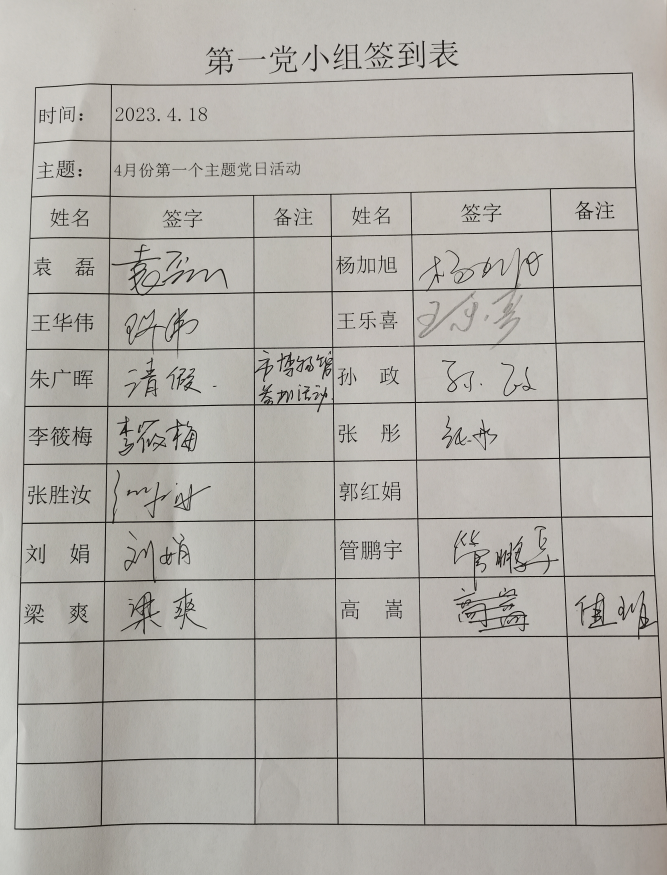 第一党小组签到表
时间： 2023.4.18
主题： 4月份第一个主题党日活动
姓名 签字 备注 姓名 签字 备注
袁 磊 袁磊 杨加旭 杨加旭
王华伟 王乐喜 王乐喜
朱广晖 请假. 市博物馆参加活动. 孙 政 孙政
李筱梅 李筱梅 张 彤
张胜汝 郭红娟
刘 娟 刘娟 管鹏宇 管鹏宇
梁 爽 梁爽 高 嵩 高嵩 值班